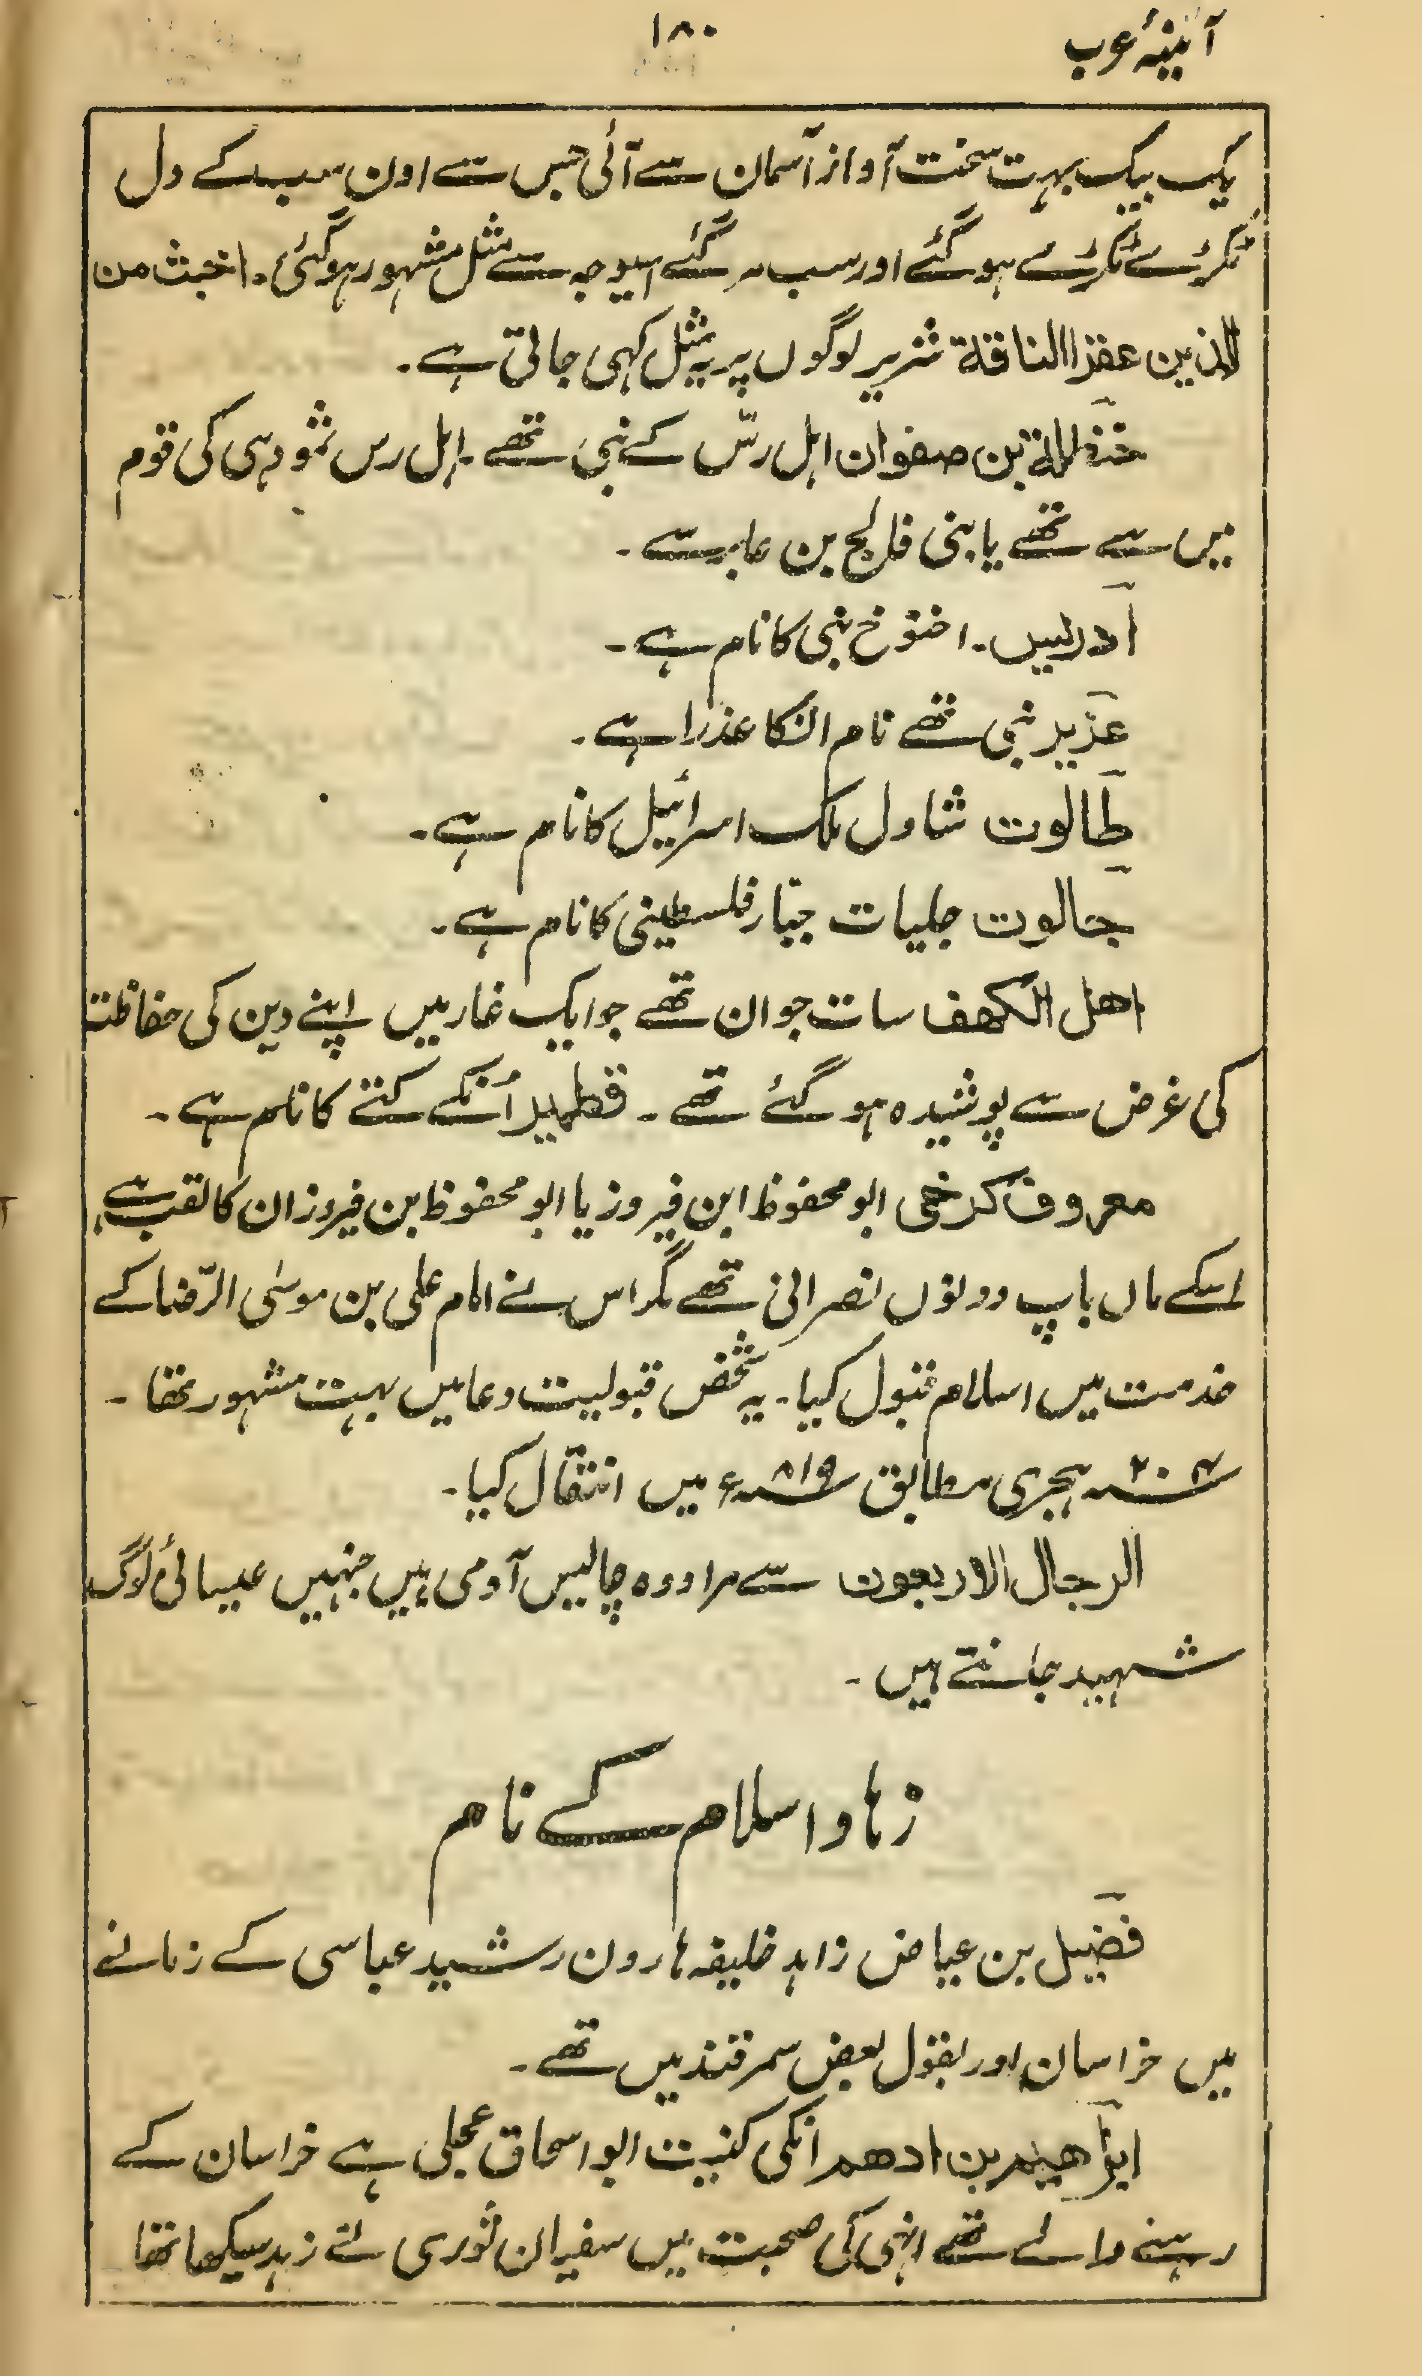 آئینۂ عرب
۱۸۰
یک بیک بہت سخت آواز آسمان سے آئی جس سے اون سب کے دل
ٹکڑے ٹکڑے ہو گئے اور سب مر گئے اسیوجہ سے مثل مشہور ہو گئی۔ اخبث من
الذین عقروا الناقة شریر لوگوں پر یہ مثل کہی جاتی ہے۔
حنظلة بن صفوان اہل رسّ کے نبی تھے۔ اہل رس ثمود ہی کی قوم
میں سے تھے یا بنی فالج بن عابر سے۔
ادریس۔ اخنوخ نبی کا نام ہے۔
عزیر نبی تھے نام انکا عذرا ہے۔
طالوت شاول ملک اسرائیل کا نام ہے۔
جالوت جلیات جبّار فلسطینی کا نام ہے۔
اهل الکهف سات جوان تھے جو ایک غار میں اپنے دین کی حفاظت
کی غرض سے پوشیدہ ہو گئے تھے۔ قطمیر اُنکے کتے کا نام ہے۔
معروف کرخی ابو محفوظ ابن فیروز یا ابو محفوظ بن فیروزان کا لقب ہے،
اسکے ماں باپ دونوں نصرانی تھے مگر اس نے امام علی بن موسٰی الرّضا کے
خدمت میں اسلام قبول کیا۔ یہ شخص قبولیت دعا میں بہت مشہور تھا۔
۲۰۴ ہجری مطابق ۸۱۹ء میں انتقال کیا۔
الرجال الاربعون سے مراد وہ چالیس آدمی ہیں جنہیں عیسائی لوگ
شہید جانتے ہیں۔
زہاد اسلام کے نام
فضیل بن عیاض زاہد خلیفہ ہارون رشید عباسی کے زمانے
میں خراسان اور بقول بعض سمرقند میں تھے۔
ابراهیم بن ادهم انکی کنیت ابو اسحاق عجلی ہے خراسان کے
رہنے والے تھے انہی کی صحبت میں سفیان ثوری نے زہد سیکھا تھا